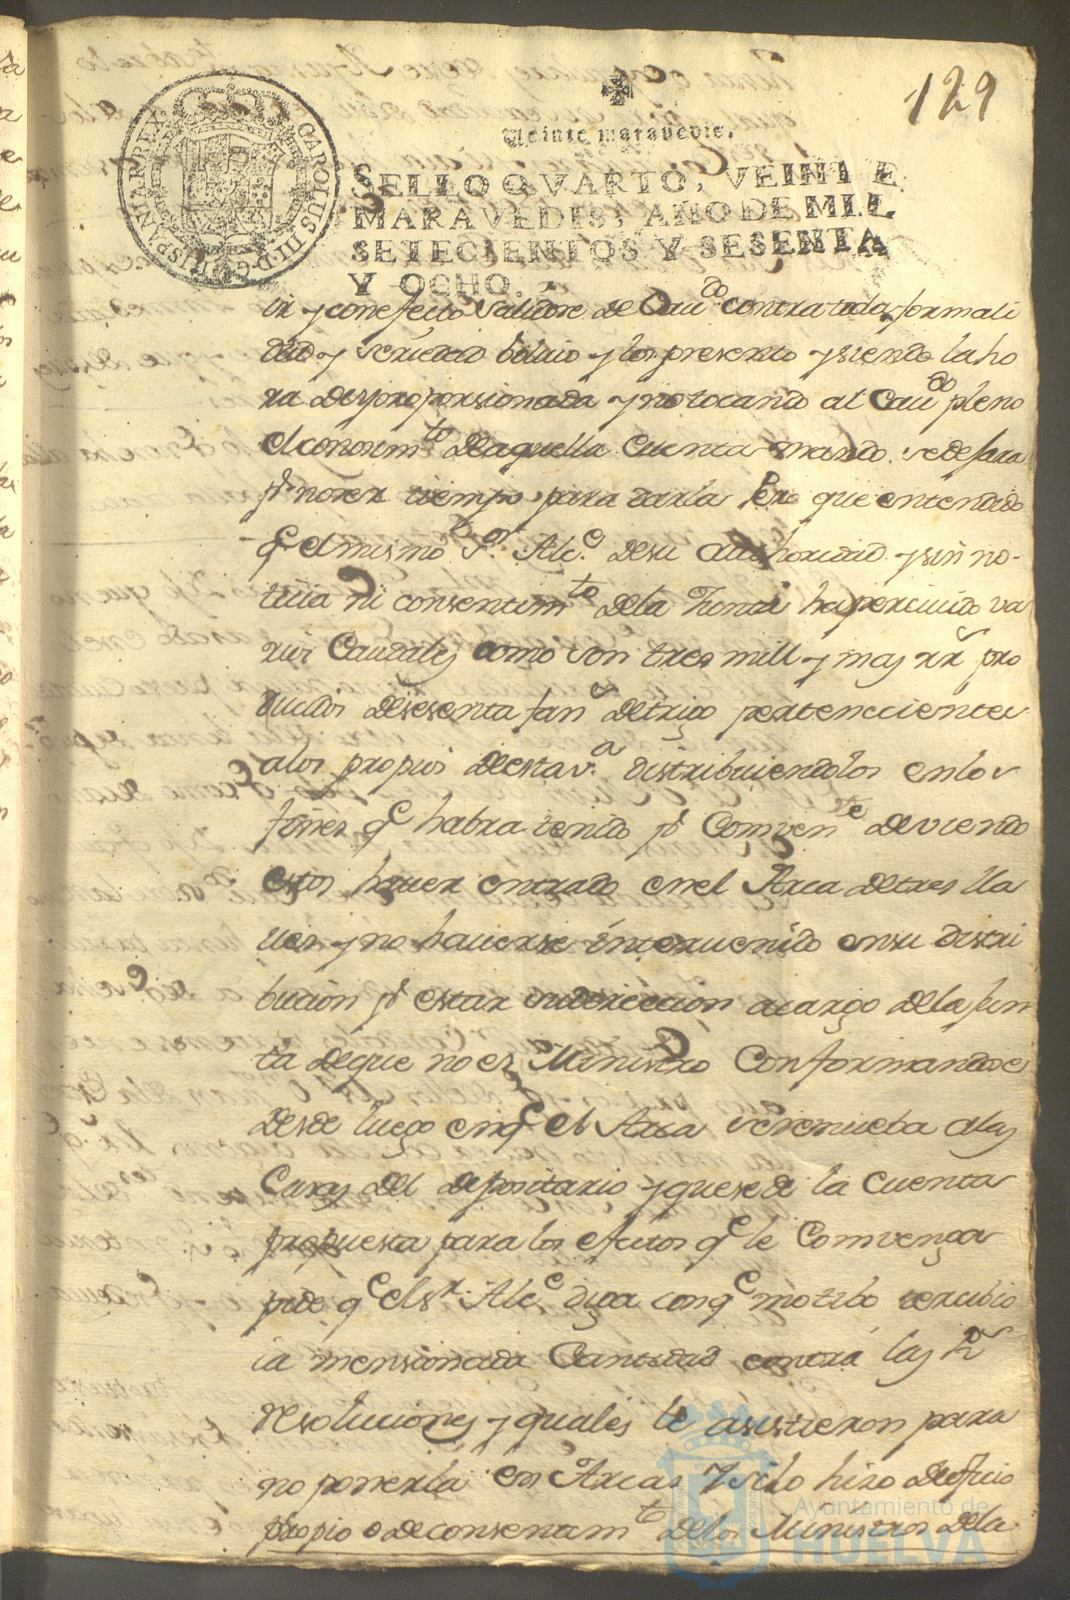 129
Veinte maravedis.
SELLO QVARTO, VEINTE
MARAVEDIS, AÑO DE MIL
SETECIENTOS Y SESENTA
Y OCHO.
CAROLUS III D G HISPANIAR REX
y conefecto salidose de Cauᵈᵒ contra toda formali
dad y seriedad volvio y los presento y siendo la ho
ra desproporsionada y no tocando al Cauᵈᵒ pleno
el conosimᵗᵒ deaquella Cuenta mando se dexara
pʳ noser tiempo para darla Pero que entendido
qᵉ elmismo Sᵒʳ Alcᵉ desu authoridad y sin no-
ticia ni consentimᵗᵒ dela Junta hapercivido va
rios Caudales como son tres mill y mas rrˢ pro
ducidos desesenta fanˢ detrigo pertenecientes
alos propios deestavᵃ distribuiendolos enlos
fines qᵉ habra tenido pʳ Comvenᵗᵉ deviendo
estos haver entrado enel Arca detres lla
ves y no haverse intervenido ensu distri
bucion pʳ estar sudireccion acargo dela Jun
ta deque no es Ministro Conformandose
desde luego enqᵉ el Arca semueba alas
Casas del depositario y quesedé la Cuenta
propuesta para los efectos qᵉ le Comvenga
pide qᵉ elsʳ Alcᵉ diga conqᵉ motibo percibio
la mensionada Cantidad contra las Rˢ
resoluciones y quales le asistieron para
no ponerla en Arcas Y silo hizo deoficio
propio o deconsentimᵗᵒ delos Ministros dela
Ayuntamiento de
HUELVA